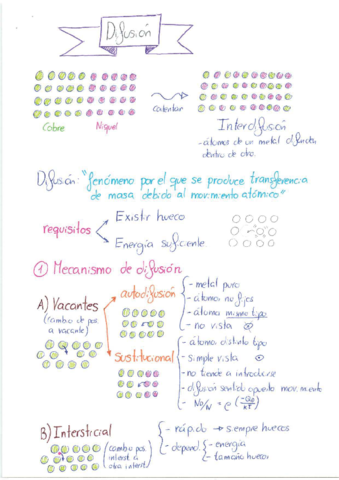 Difusión
Cobre
Niquel
calentar
Interdifusión
- átomos de un metal difunden
dentro de otro.
Difusión: "fenómeno por el que se produce transferencia
de masa debido al movimiento atómico"
requisitos
Existir hueco
Energía suficiente
① Mecanismo de difusión
A) Vacantes
(cambio de pos
a vacante)
autodifusión
- metal puro
- átomos no fijos
- átomo mismo tipo
- no vista
Sustitucional
- átomo distinto tipo
- simple vista
- no tiende a introducirse
- difusión sentido opuesto movimiente
- No/N = e (-Qo/KT)
B) Intersticial
(cambio pos
interst a
otra interst)
- rápido → siempre huecos
- depend.
- energía
- tamaño huecos